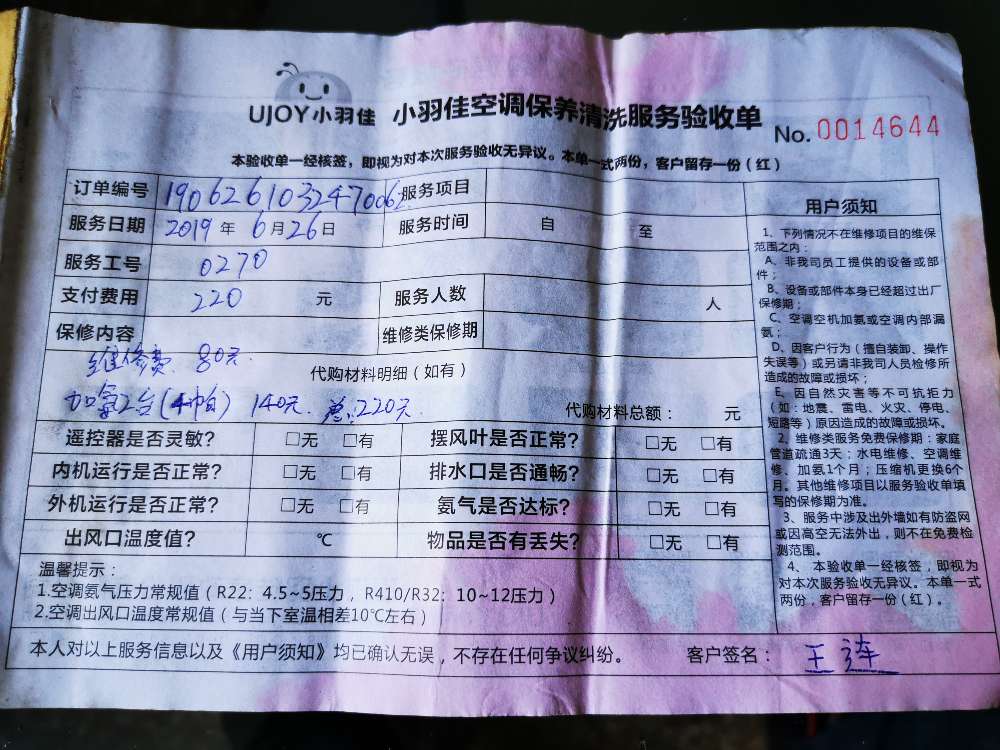 UJOY小羽佳 小羽佳空调保养清洗服务验收单 No. 0014644
本验收单一经核签，即视为对本次服务验收无异议。本单一式两份，客户留存一份（红）
订单编号 服务项目
服务日期 2019 年 6 月 26 日 服务时间 自 至
服务工号 0270
支付费用 220 元 服务人数 人
保修内容 维修类保修期
维修费 80元. 代购材料明细（如有）
加氨2台(4帕) 140元. 共:220元. 代购材料总额： 元
遥控器是否灵敏? □无 □有 摆风叶是否正常? □无 □有
内机运行是否正常? □无 □有 排水口是否通畅? □无 □有
外机运行是否正常? □无 □有 氨气是否达标? □无 □有
出风口温度值? ℃ 物品是否有丢失? □无 □有
温馨提示：
1.空调氨气压力常规值（R22：4.5~5压力，R410/R32：10~12压力）
2.空调出风口温度常规值（与当下室温相差10℃左右）
本人对以上服务信息以及《用户须知》均已确认无误，不存在任何争议纠纷。 客户签名： 王连
用户须知
1、下列情况不在维修项目的维保
范围之内：
A、非我司员工提供的设备或部
件；
B、设备或部件本身已经超过出厂
保修期；
C、空调空机加氨或空调内部漏
氨；
D、因客户行为（擅自装卸、操作
失误等）或另请非我司人员检修所
造成的故障或损坏；
E、因自然灾害等不可抗拒力
（如：地震、雷电、火灾、停电、
短路等）原因造成的故障或损坏。
2、维修类服务免费保修期：家庭
管道疏通3天；水电维修、空调维
修、加氨1个月；压缩机更换6个
月。其他维修项目以服务验收单填
写的保修期为准。
3、服务中涉及出外墙如有防盗网
或因高空无法外出，则不在免费检
测范围。
4、本验收单一经核签，即视为
对本次服务验收无异议。本单一式
两份，客户留存一份（红）。